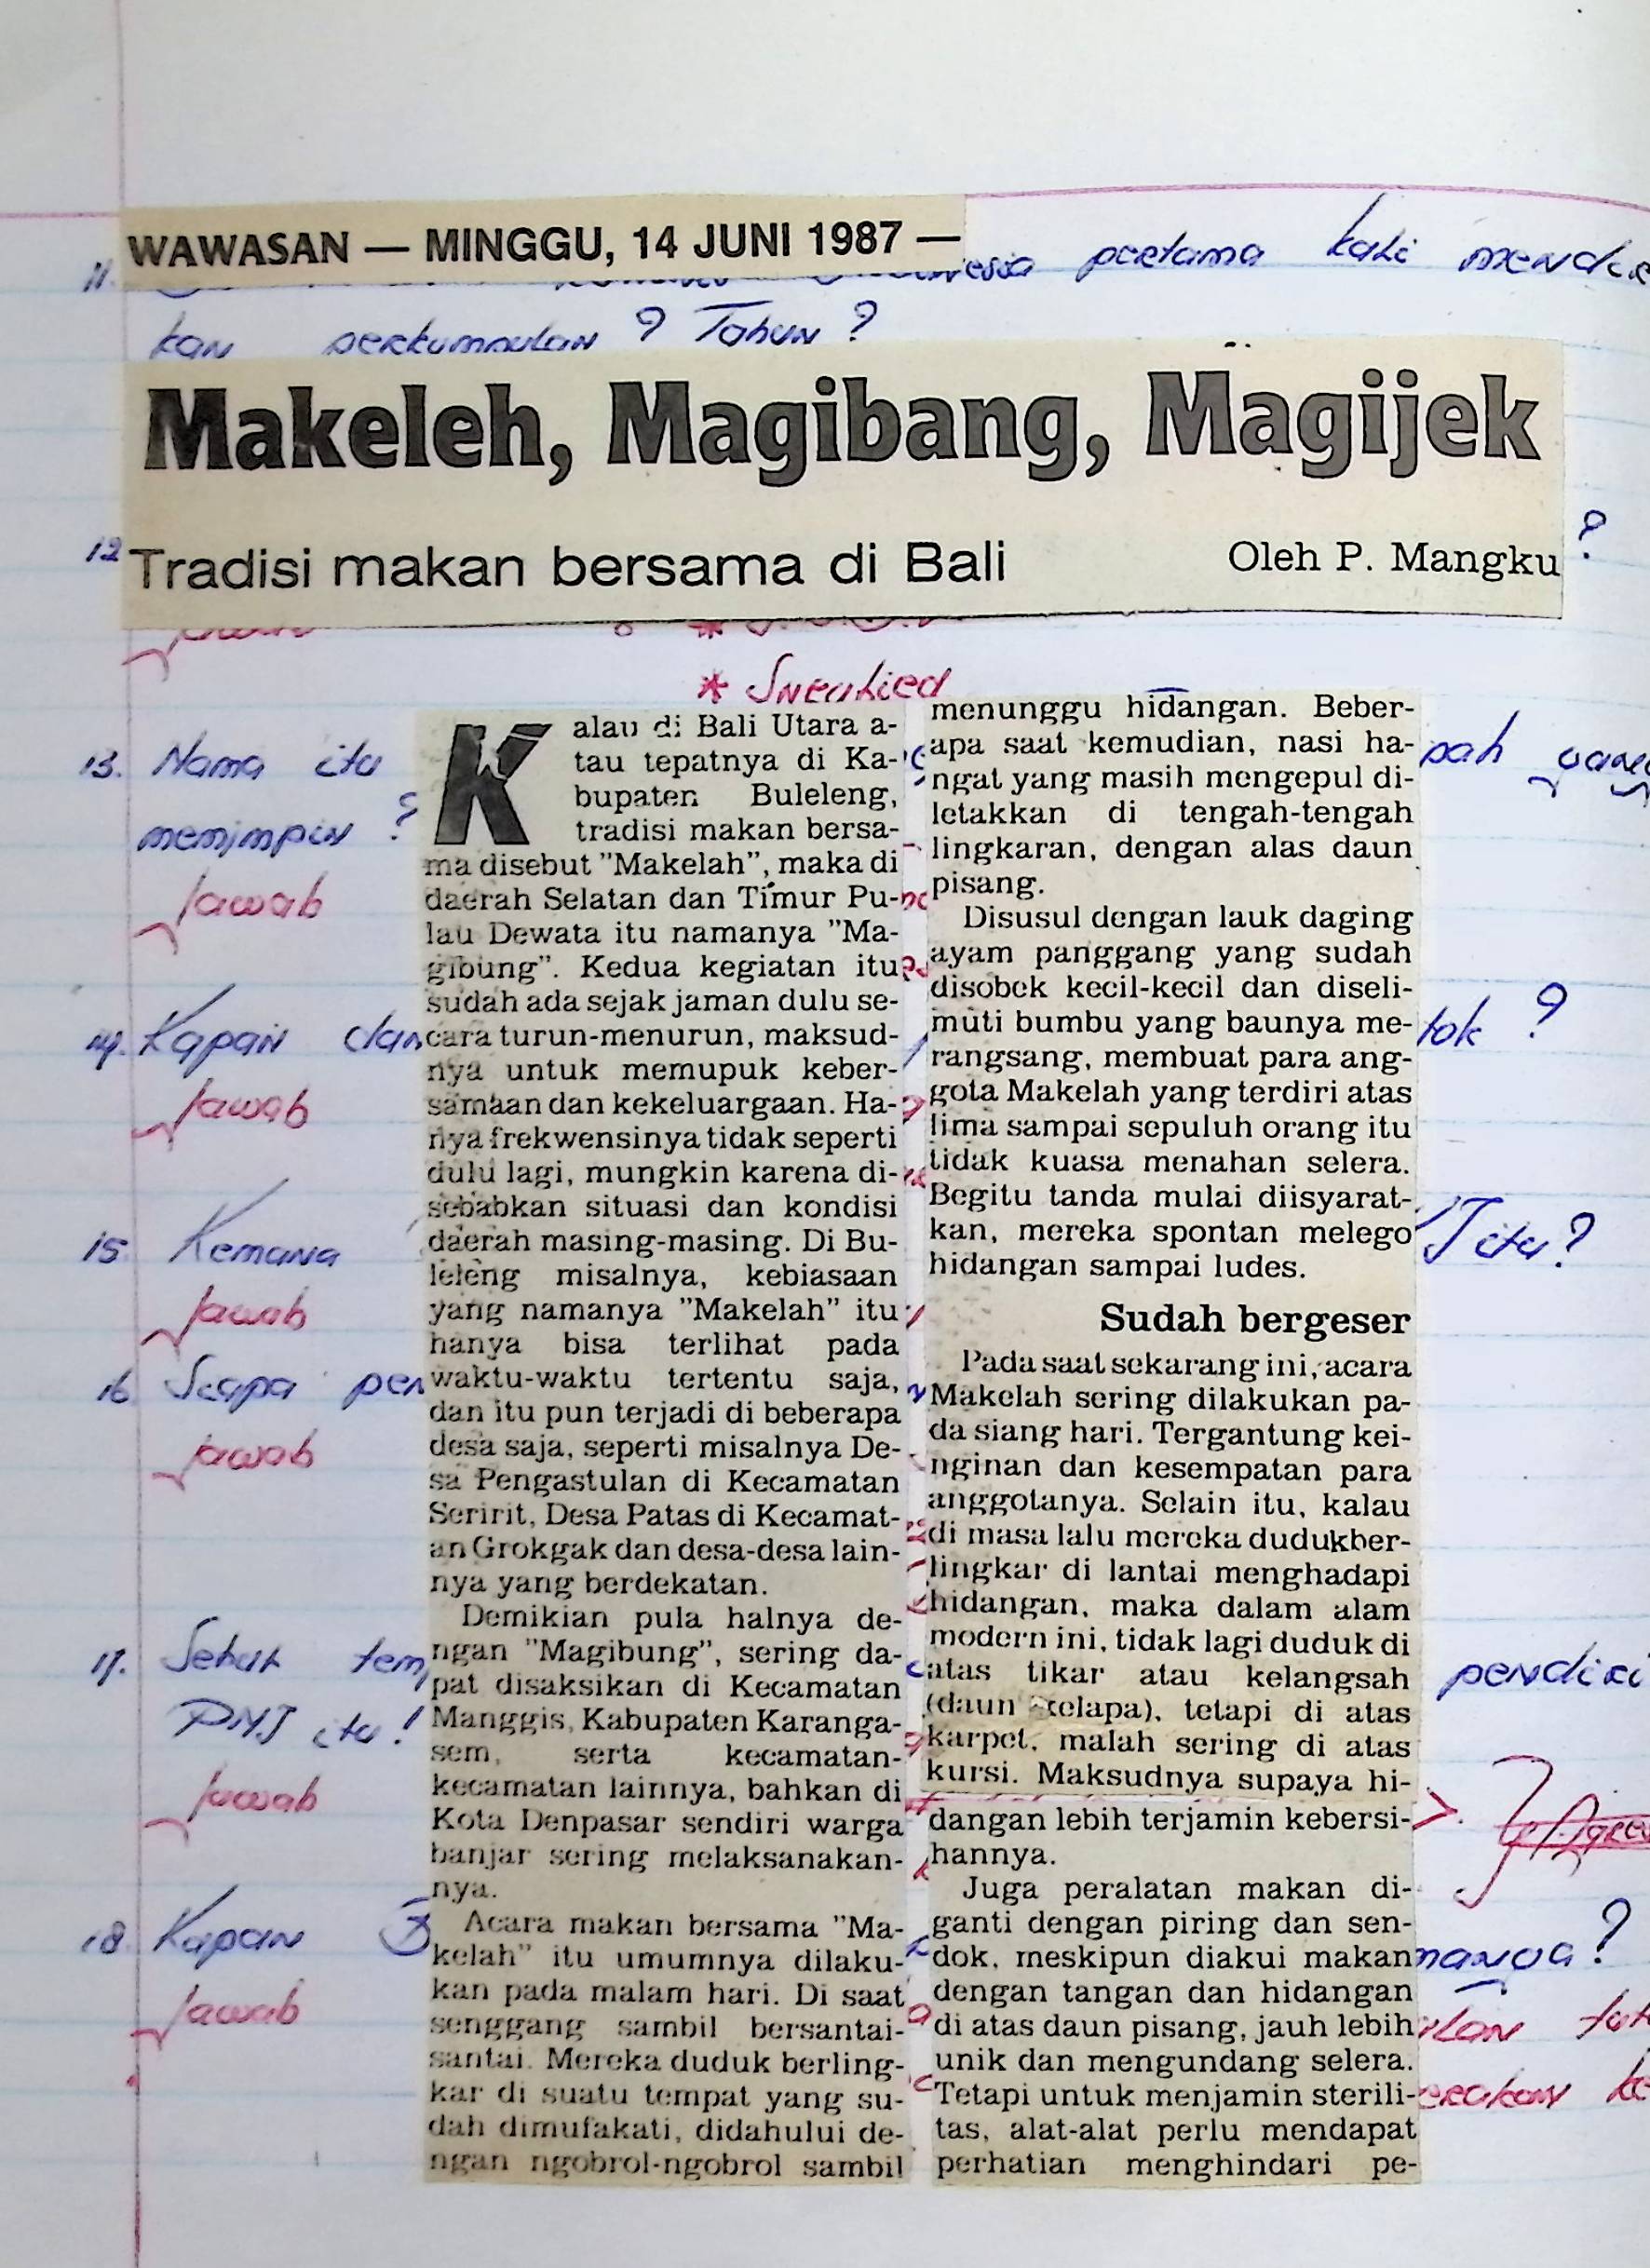 WAWASAN — MINGGU, 14 JUNI 1987 —
11. pertama kali
kan perkumpulan ? Tahun ?
Makeleh, Magibang, Magijek
12 Tradisi makan bersama di Bali Oleh P. Mangku ?
*
13. Nama itu
memimpin ?
Jawab
14. Kapan dan
Jawab
15. Kemana
Jawab
16. Siapa pen
Jawab
17. Sebut tem
PNI itu !
Jawab
18. Kapan
Jawab
Kalau di Bali Utara a-
tau tepatnya di Ka-
bupaten Buleleng,
tradisi makan bersa-
ma disebut "Makelah", maka di
daerah Selatan dan Timur Pu-
lau Dewata itu namanya "Ma-
gibung". Kedua kegiatan itu
sudah ada sejak jaman dulu se-
cara turun-menurun, maksud-
nya untuk memupuk keber-
samaan dan kekeluargaan. Ha-
nya frekwensinya tidak seperti
dulu lagi, mungkin karena di-
sebabkan situasi dan kondisi
daerah masing-masing. Di Bu-
leleng misalnya, kebiasaan
yang namanya "Makelah" itu
hanya bisa terlihat pada
waktu-waktu tertentu saja,
dan itu pun terjadi di beberapa
desa saja, seperti misalnya De-
sa Pengastulan di Kecamatan
Seririt, Desa Patas di Kecamat-
an Grokgak dan desa-desa lain-
nya yang berdekatan.
Demikian pula halnya de-
ngan "Magibung", sering da-
pat disaksikan di Kecamatan
Manggis, Kabupaten Karanga-
sem, serta kecamatan-
kecamatan lainnya, bahkan di
Kota Denpasar sendiri warga
banjar sering melaksanakan-
nya.
Acara makan bersama "Ma-
kelah" itu umumnya dilaku-
kan pada malam hari. Di saat
senggang sambil bersantai-
santai. Mereka duduk berling-
kar di suatu tempat yang su-
dah dimufakati, didahului de-
ngan ngobrol-ngobrol sambil
menunggu hidangan. Beber-
apa saat kemudian, nasi ha-
ngat yang masih mengepul di-
letakkan di tengah-tengah
lingkaran, dengan alas daun
pisang.
Disusul dengan lauk daging
ayam panggang yang sudah
disobek kecil-kecil dan diseli-
muti bumbu yang baunya me-
rangsang, membuat para ang-
gota Makelah yang terdiri atas
lima sampai sepuluh orang itu
tidak kuasa menahan selera.
Begitu tanda mulai diisyarat-
kan, mereka spontan melego
hidangan sampai ludes.
Sudah bergeser
Pada saat sekarang ini, acara
Makelah sering dilakukan pa-
da siang hari. Tergantung kei-
nginan dan kesempatan para
anggotanya. Selain itu, kalau
di masa lalu mereka dudukber-
lingkar di lantai menghadapi
hidangan, maka dalam alam
modern ini, tidak lagi duduk di
atas tikar atau kelangsah
(daun kelapa), tetapi di atas
karpet, malah sering di atas
kursi. Maksudnya supaya hi-
dangan lebih terjamin kebersi-
hannya.
Juga peralatan makan di-
ganti dengan piring dan sen-
dok, meskipun diakui makan
dengan tangan dan hidangan
di atas daun pisang, jauh lebih
unik dan mengundang selera.
Tetapi untuk menjamin sterili-
tas, alat-alat perlu mendapat
perhatian menghindari pe-
pah yang
tok ?
itu?
pendiri